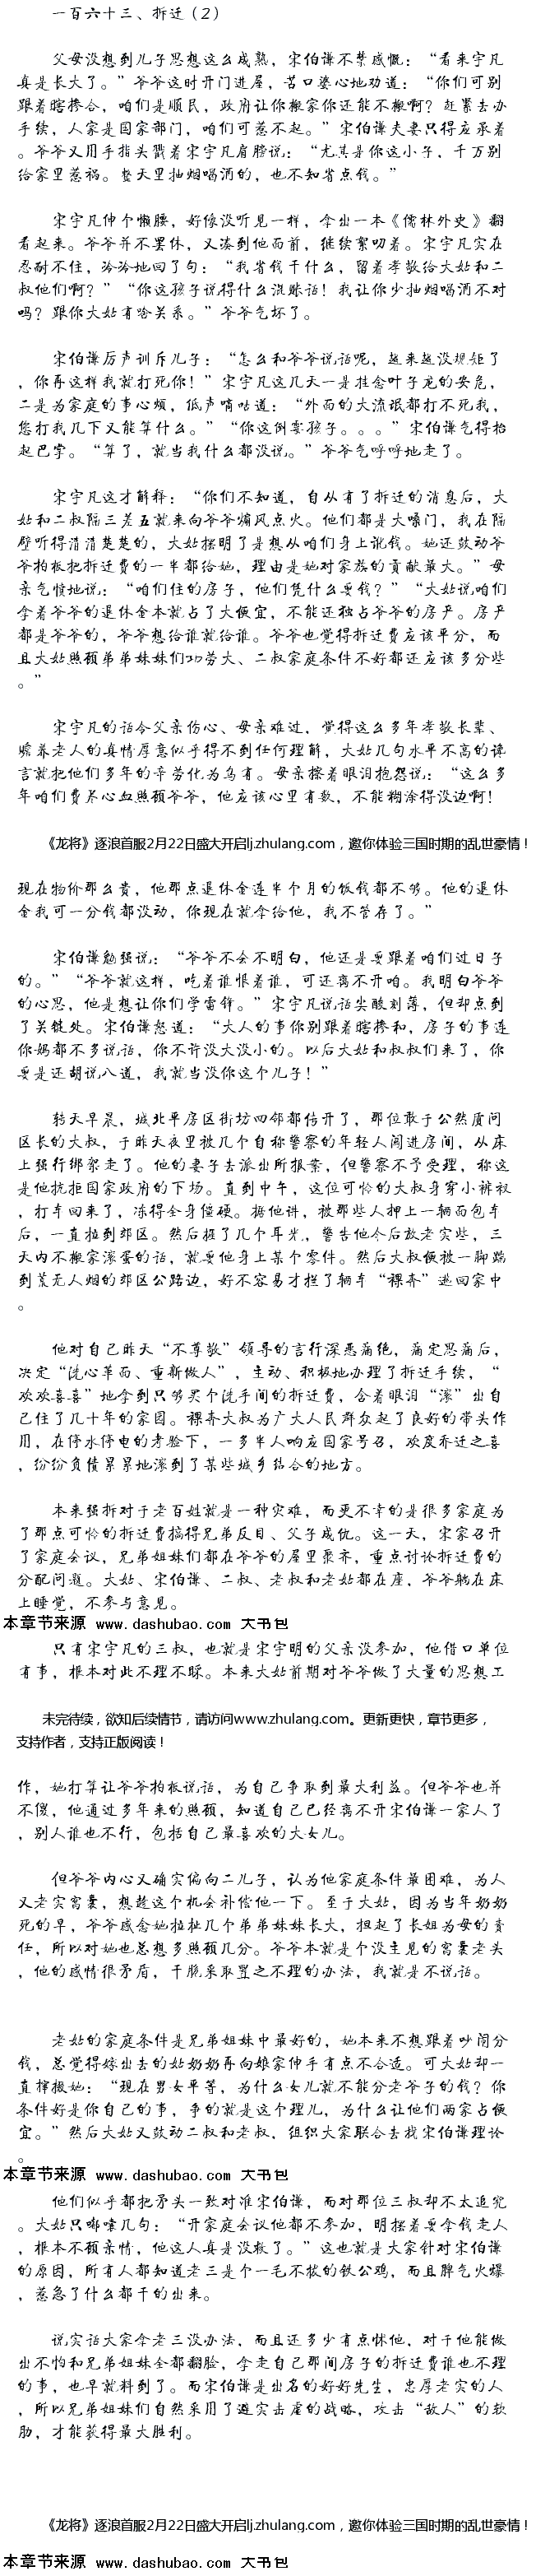 一百六十三、拆迁（2）
父母没想到儿子思想这么成熟，宋伯谦不禁感慨：“看来宇凡
真是长大了。”爷爷这时开门进屋，苦口婆心地劝道：“你们可别
跟着瞎掺合，咱们是顺民，政府让你搬家你还能不搬啊？赶紧去办
手续，人家是国家部门，咱们可惹不起。”宋伯谦夫妻只得应承着
。爷爷又用手指头戳着宋宇凡肩膀说：“尤其是你这小子，千万别
给家里惹祸。整天里抽烟喝酒的，也不知省点钱。”
宋宇凡伸个懒腰，好像没听见一样，拿出一本《儒林外史》翻
看起来。爷爷并不罢休，又凑到他面前，继续絮叨着。宋宇凡实在
忍耐不住，冷冷地回了句：“我省钱干什么，留着孝敬给大姑和二
叔他们啊？”“你这孩子说得什么混账话！我让你少抽烟喝酒不对
吗？跟你大姑有啥关系。”爷爷气坏了。
宋伯谦厉声训斥儿子：“怎么和爷爷说话呢，越来越没规矩了
，你再这样我就打死你！”宋宇凡这几天一是挂念叶子龙的安危，
二是为家庭的事心烦，低声嘀咕道：“外面的大流氓都打不死我，
您打我几下又能算什么。”“你这倒霉孩子。。。”宋伯谦气得抬
起巴掌。“算了，就当我什么都没说。”爷爷气呼呼地走了。
宋宇凡这才解释：“你们不知道，自从有了拆迁的消息后，大
姑和二叔隔三差五就来向爷爷煽风点火。他们都是大嗓门，我在隔
壁听得清清楚楚的，大姑摆明了是想从咱们身上讹钱。她还鼓动爷
爷拍板把拆迁费的一半都给她，理由是她对家族的贡献最大。”母
亲气愤地说：“咱们住的房子，他们凭什么要钱？”“大姑说咱们
拿着爷爷的退休金本就占了大便宜，不能还独占爷爷的房产。房产
都是爷爷的，爷爷想给谁就给谁。爷爷也觉得拆迁费应该平分，而
且大姑照顾弟弟妹妹们功劳大、二叔家庭条件不好都还应该多分些
。”
宋宇凡的话令父亲伤心、母亲难过，觉得这么多年孝敬长辈、
赡养老人的真情厚意似乎得不到任何理解，大姑几句水平不高的谗
言就把他们多年的辛劳化为乌有。母亲擦着眼泪抱怨说：“这么多
年咱们费尽心血照顾爷爷，他应该心里有数，不能糊涂得没边啊！
《龙将》逐浪首服2月22日盛大开启lj.zhulang.com，邀你体验三国时期的乱世豪情！
现在物价那么贵，他那点退休金连半个月的饭钱都不够。他的退休
金我可一分钱都没动，你现在就拿给他，我不管存了。”
宋伯谦勉强说：“爷爷不会不明白，他还是要跟着咱们过日子
的。”“爷爷就这样，吃着谁恨着谁，可还离不开咱。我明白爷爷
的心思，他是想让你们学雷锋。”宋宇凡说话尖酸刻薄，但却点到
了关键处。宋伯谦怒道：“大人的事你别跟着瞎掺和，房子的事连
你妈都不多说话，你不许没大没小的。以后大姑和叔叔们来了，你
要是还胡说八道，我就当没你这个儿子！”
转天早晨，城北平房区街坊四邻都传开了，那位敢于公然质问
区长的大叔，于昨天夜里被几个自称警察的年轻人闯进房间，从床
上强行绑架走了。他的妻子去派出所报案，但警察不予受理，称这
是他抗拒国家政府的下场。直到中午，这位可怜的大叔身穿小裤衩
，打车回来了，冻得全身僵硬。据他讲，被那些人押上一辆面包车
后，一直拉到郊区。然后挨了几个耳光，警告他今后放老实些，三
天内不搬家滚蛋的话，就要他身上某个零件。然后大叔便被一脚踹
到荒无人烟的郊区公路边，好不容易才拦了辆车“裸奔”逃回家中
。
他对自己昨天“不尊敬”领导的言行深恶痛绝，痛定思痛后，
决定“洗心革面、重新做人”，主动、积极地办理了拆迁手续，“
欢欢喜喜”地拿到只够买个洗手间的拆迁费，含着眼泪“滚”出自
己住了几十年的家园。裸奔大叔为广大人民群众起了良好的带头作
用，在停水停电的考验下，一多半人响应国家号召，欢度乔迁之喜
，纷纷负债累累地滚到了某些城乡结合的地方。
本来强拆对于老百姓就是一种灾难，而更不幸的是很多家庭为
了那点可怜的拆迁费搞得兄弟反目、父子成仇。这一天，宋家召开
了家庭会议，兄弟姐妹们都在爷爷的屋里聚齐，重点讨论拆迁费的
分配问题。大姑、宋伯谦、二叔、老叔和老姑都在座，爷爷躺在床
上睡觉，不参与意见。
本章节来源 www.dashubao.com 大书包
只有宋宇凡的三叔，也就是宋宇明的父亲没参加，他借口单位
有事，根本对此不理不睬。本来大姑前期对爷爷做了大量的思想工
未完待续，欲知后续情节，请访问www.zhulang.com。更新更快，章节更多，
支持作者，支持正版阅读！
作，她打算让爷爷拍板说话，为自己争取到最大利益。但爷爷也并
不傻，他通过多年来的照顾，知道自己已经离不开宋伯谦一家人了
，别人谁也不行，包括自己最喜欢的大女儿。
但爷爷内心又确实偏向二儿子，认为他家庭条件最困难，为人
又老实窝囊，想趁这个机会补偿他一下。至于大姑，因为当年奶奶
死的早，爷爷感念她拉扯几个弟弟妹妹长大，担起了长姐为母的责
任，所以对她也总想多照顾几分。爷爷本就是个没主见的窝囊老头
，他的感情很矛盾，干脆采取置之不理的办法，我就是不说话。
老姑的家庭条件是兄弟姐妹中最好的，她本来不想跟着吵闹分
钱，总觉得嫁出去的姑奶奶再向娘家伸手有点不合适。可大姑却一
直撺掇她：“现在男女平等，为什么女儿就不能分老爷子的钱？你
条件好是你自己的事，争的就是这个理儿，为什么让他们两家占便
宜。”然后大姑又鼓动二叔和老叔，组织大家联合去找宋伯谦理论
。
本章节来源 www.dashubao.com 大书包
他们似乎都把矛头一致对准宋伯谦，而对那位三叔却不太追究
。大姑只嘟囔几句：“开家庭会议他都不参加，明摆着要拿钱走人，
根本不顾亲情，他这人真是没救了。”这也就是大家针对宋伯谦
的原因，所有人都知道老三是个一毛不拔的铁公鸡，而且脾气火爆
，惹急了什么都干的出来。
说实话大家拿老三没办法，而且还多少有点怵他，对于他能做
出不怕和兄弟姐妹全都翻脸，拿走自己那间房子的拆迁费谁也不理
的事，也早就料到了。而宋伯谦是出名的好好先生，忠厚老实的人
，所以兄弟姐妹们自然采用了避实击虚的战略，攻击“敌人”的软
肋，才能获得最大胜利。
《龙将》逐浪首服2月22日盛大开启lj.zhulang.com，邀你体验三国时期的乱世豪情！
本章节来源 www.dashubao.com 大书包